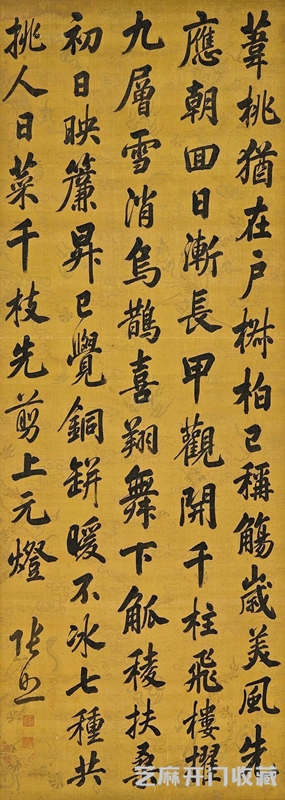 葦桃猶在戶椒柏已稱觴歲美風先
應朝囬日漸長甲觀開千柱飛樓擢
九層雪消烏鵲喜翔舞下觚稜扶桒
初日映簾昇已覺銅缾暖不冰七種共
挑人日菜千枝先剪上元燈
張照
芝麻开门收藏